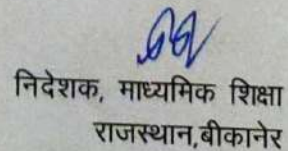 निदेशक, माध्यमिक शिक्षा
राजस्थान,बीकानेर